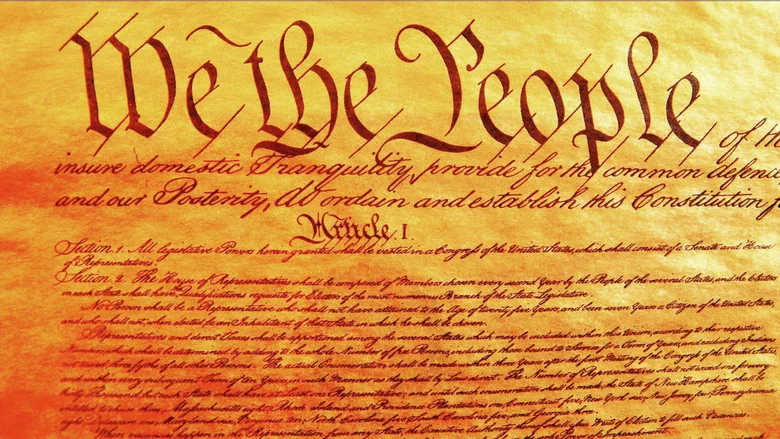 We the People of th
insure domestic Tranquility, provide for the common defence
and our Posterity, do ordain and establish this Constitution f
Article. I.
Section 1. All legislative Powers herein granted shall be vested in a Congress of the United States, which shall consist of a Senate and House
of Representatives.
Section 2. The House of Representatives shall be composed of Members chosen every second Year by the People of the several States, and the Electors
in each State shall have the Qualifications requisite for Electors of the most numerous Branch of the State Legislature.
No Person shall be a Representative who shall not have attained to the Age of twenty five Years, and been seven Years a Citizen of the United States,
and who shall not, when elected, be an Inhabitant of that State in which he shall be chosen.
Representatives and direct Taxes shall be apportioned among the several States which may be included within this Union, according to their respective
Numbers, which shall be determined by adding to the whole Number of free Persons, including those bound to Service for a Term of Years, and excluding Indians
not taxed, three fifths of all other Persons. The actual Enumeration shall be made within three Years after the first Meeting of the Congress of the United States,
and within every subsequent Term of ten Years, in such Manner as they shall by Law direct. The Number of Representatives shall not exceed one for every
thirty Thousand, but each State shall have at Least one Representative; and until such enumeration shall be made, the State of New Hampshire shall be
entitled to chuse three, Massachusetts eight, Rhode Island and Providence Plantations one, Connecticut five, New York six, New Jersey four, Pennsylvania
eight, Delaware one, Maryland six, Virginia ten, North Carolina five, South Carolina five, and Georgia three.
When vacancies happen in the Representation from any State, the Executive Authority thereof shall issue Writs of Election to fill such Vacancies.